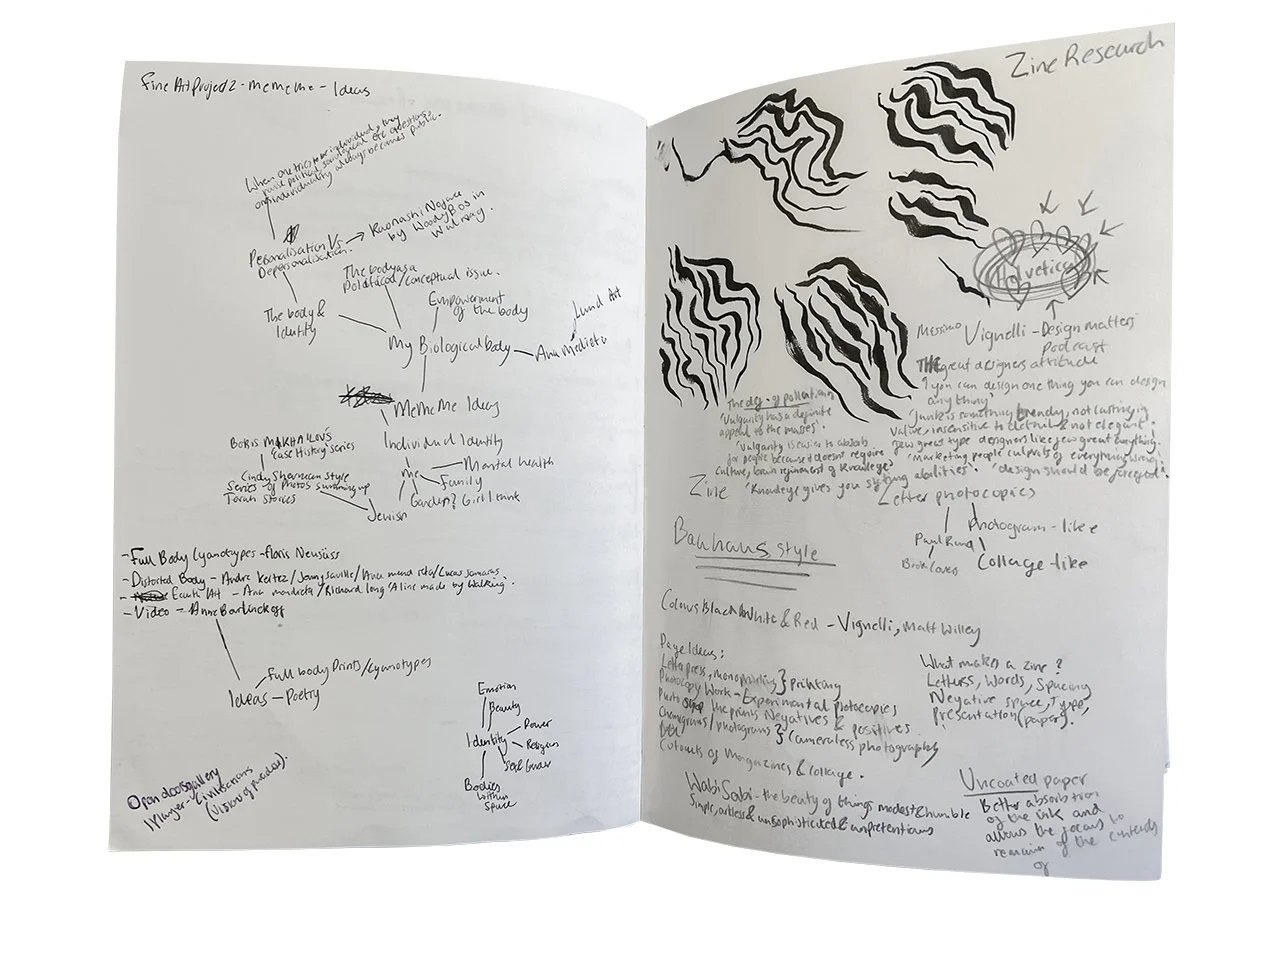 Fine Art Project 2 - MeMeMe - Ideas
When one tries to be individual, they
raise political, sociological etc questions,
individuality always becomes public.
Personalisation Vs
Depersonalisation.
Kaonashi Noface
by Woody Bos in
Walway.
The body &
Identity
The body as a
Political/conceptual issue.
Empowerment
of the body
Land Art
My Biological body
Ana Medieta
MeMeMe Ideas
Individual Identity
Me
Mental health
Family
Gender? Girl I think
Jewish
Boris MIKHAILOV'S
'Case History' series
Cindy Sherman style
Series of Photos summing up
Torah stories
- Full Body Cyanotypes - Floris Neusüss
- Distorted Body - Andre Kertez/Jenny saville/Ana mendieta/Lucas Samaras.
- Earth Art - Ana mendieta/Richard long 'A line made by Walking'.
- Video - Anne
Ideas
Full body Prints/Cyanotypes
Poetry
Emotion
Beauty
Identity
Power
Religion
Self Gender
Bodies
within
Space
Open doors gallery
Civilisations
Zine Research
Helvetica
Messimo Vignelli - Design matters
Podcast
THE great designers attitude
'if you can design one thing you can design
anything'
'Junk is something trendy, not lasting in
value, insensitive to detail & not elegant'.
few great type designers like few great everything.
'Marketing people culprits of everything wrong'.
'design should be forever'.
The def. of
'Vulgarity has a definite
appeal to the masses'.
'Vulgarity is easier to absorb
for people because it doesnt require
culture, brain refinement of Knowlege'
'Knowlege gives you sifting abilities'.
Zine
Letter photocopies
Photogram - like
Paul Rand
Book Covers
Collage - like
Bauhaus style
Colours Black White & Red - Vignelli, Matt Willey
Page Ideas:
Letterpress, monoprinting } printing
Photocopy Work - Experimental photocopies
Photoshop the prints Negatives & positives
Chemigrams/photograms } Cameraless photography
Cutouts of Mangazines & Collage.
What makes a zine?
Letters, Words, Spacing
Negative space, Type,
Presentation (paper).
Wabi Sabi - the beauty of things modest & humble
Simple, artless & unsophisticated & unpretentious
Uncoated paper
Better absorbtion
of the ink and
allows the focus to
remain of the contents
of